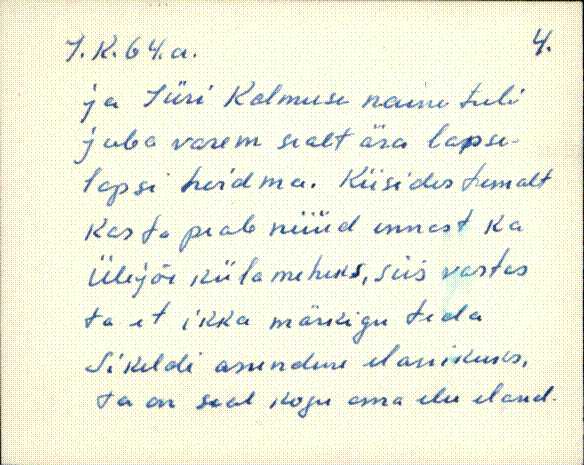 J.K. 64.a. 4.
ja Jüri Kalmuse naine tuli
juba varem sealt ära lapse-
lapsi hoidma. Küsides temalt
kas ta peab nüüd ennast ka
Ülejõe küla meheks, siis vastas
ta et ikka märkigu teda
Sikeldi asunduse elanikuks,
ta on seal kogu oma elu eland.